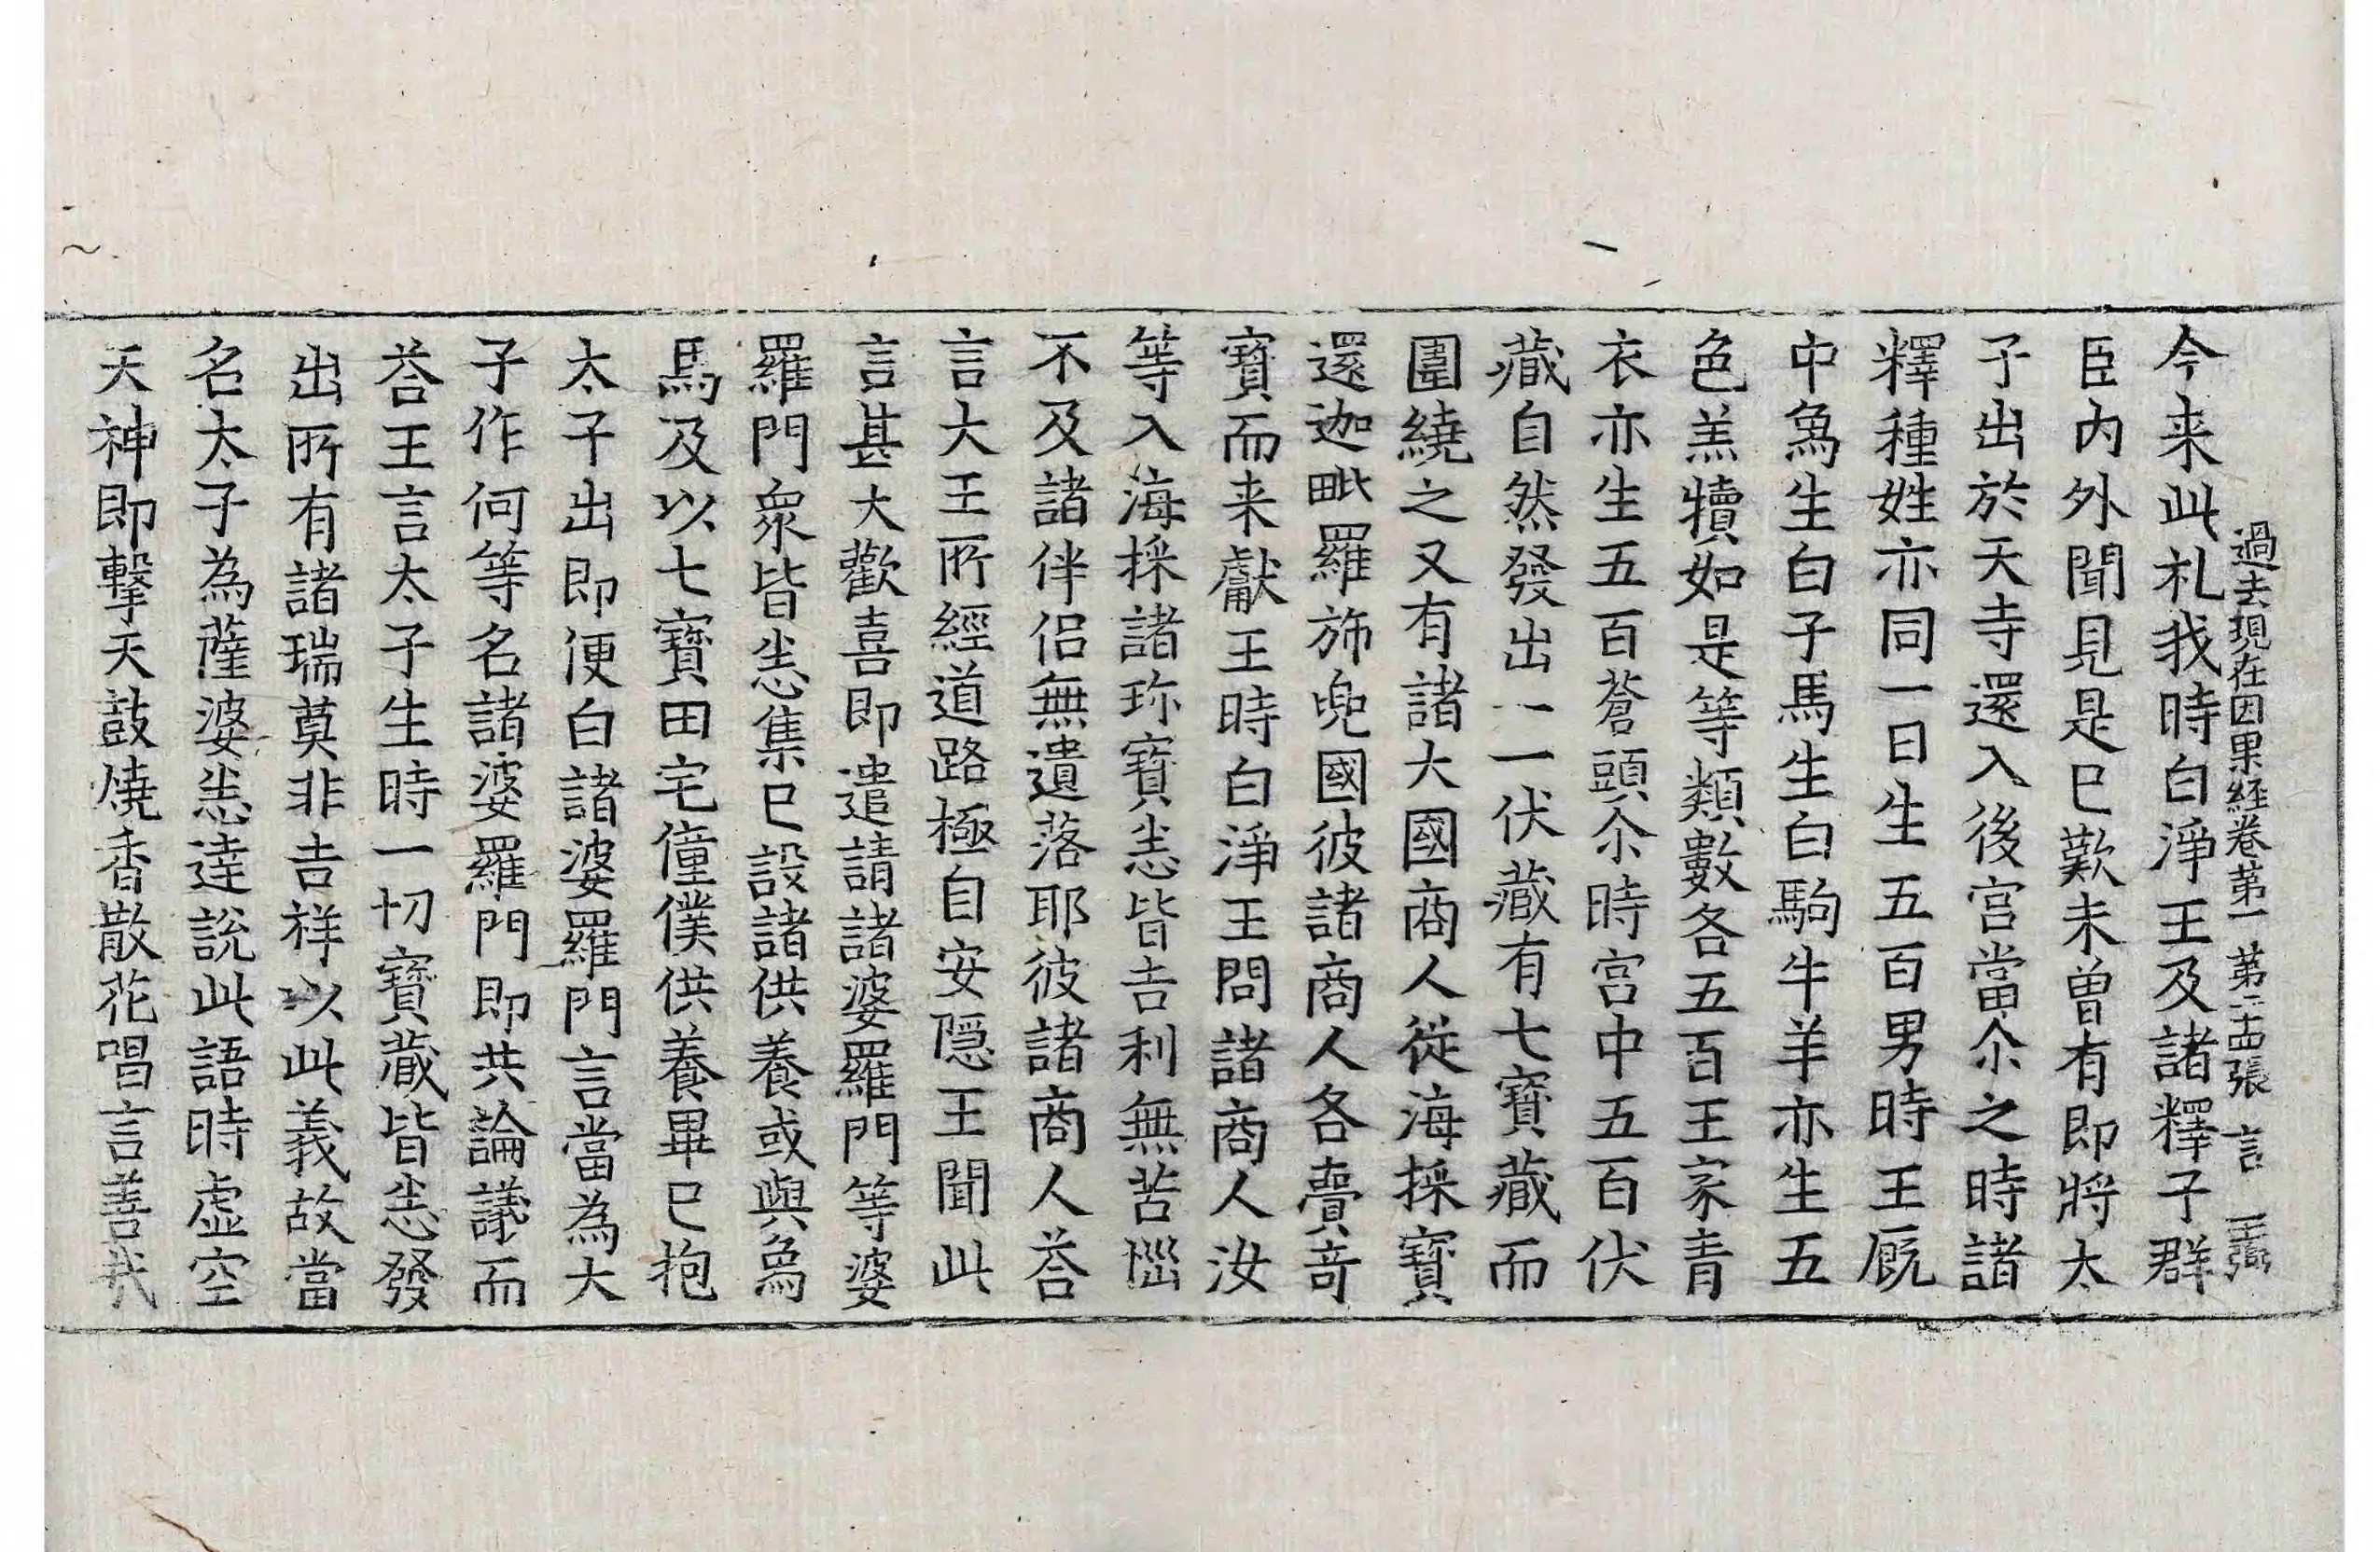 過去現在因果経卷第一 第二十四張 言 王弼
今来此礼我時白淨王及諸釋子群
臣内外聞見是巳歎未曾有即將太
子出於天寺還入後宮當尒之時諸
釋種姓亦同一日生五百男時王厩
中𤉡生白子馬生白駒牛羊亦生五
色羔犢如是等類數各五百王家青
衣亦生五百蒼頭尒時宮中五百伏
藏自然發出一一伏藏有七寶藏而
圍繞之又有諸大國商人從海採寶
還迦毗羅斾兜國彼諸商人各賷竒
寶而来獻王時白淨王問諸商人汝
等入海採諸珎寶悉皆吉利無苦惱
不及諸伴侣無遺落耶彼諸商人荅
言大王所經道路極自安隠王聞此
言甚大歡喜即遣請諸婆羅門等婆
羅門衆皆悉集巳設諸供養或與𤉡
馬及以七寶田宅僮僕供養畢巳抱
太子出即便白諸婆羅門言當為太
子作何等名諸婆羅門即共論議而
荅王言太子生時一切寶藏皆悉發
出所有諸瑞莫非吉祥以此義故當
名太子為薩婆悉達說此語時虚空
天神即擊天鼓燒香散花唱言善哉